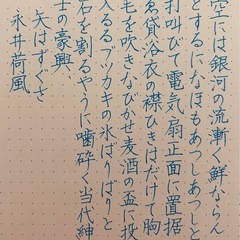 空には銀河の流漸く鮮ならん
とするになほもあつしあつしと
打叫びて電気扇正面に置据
ゑ貸浴衣の襟ひきはだけて胸
毛を吹きなびかせ麦酒の盃に投
入るるブツカキの氷ばりばりと
石を割るやうに噛砕く当代紳
士の豪興
矢はずぐさ
永井荷風